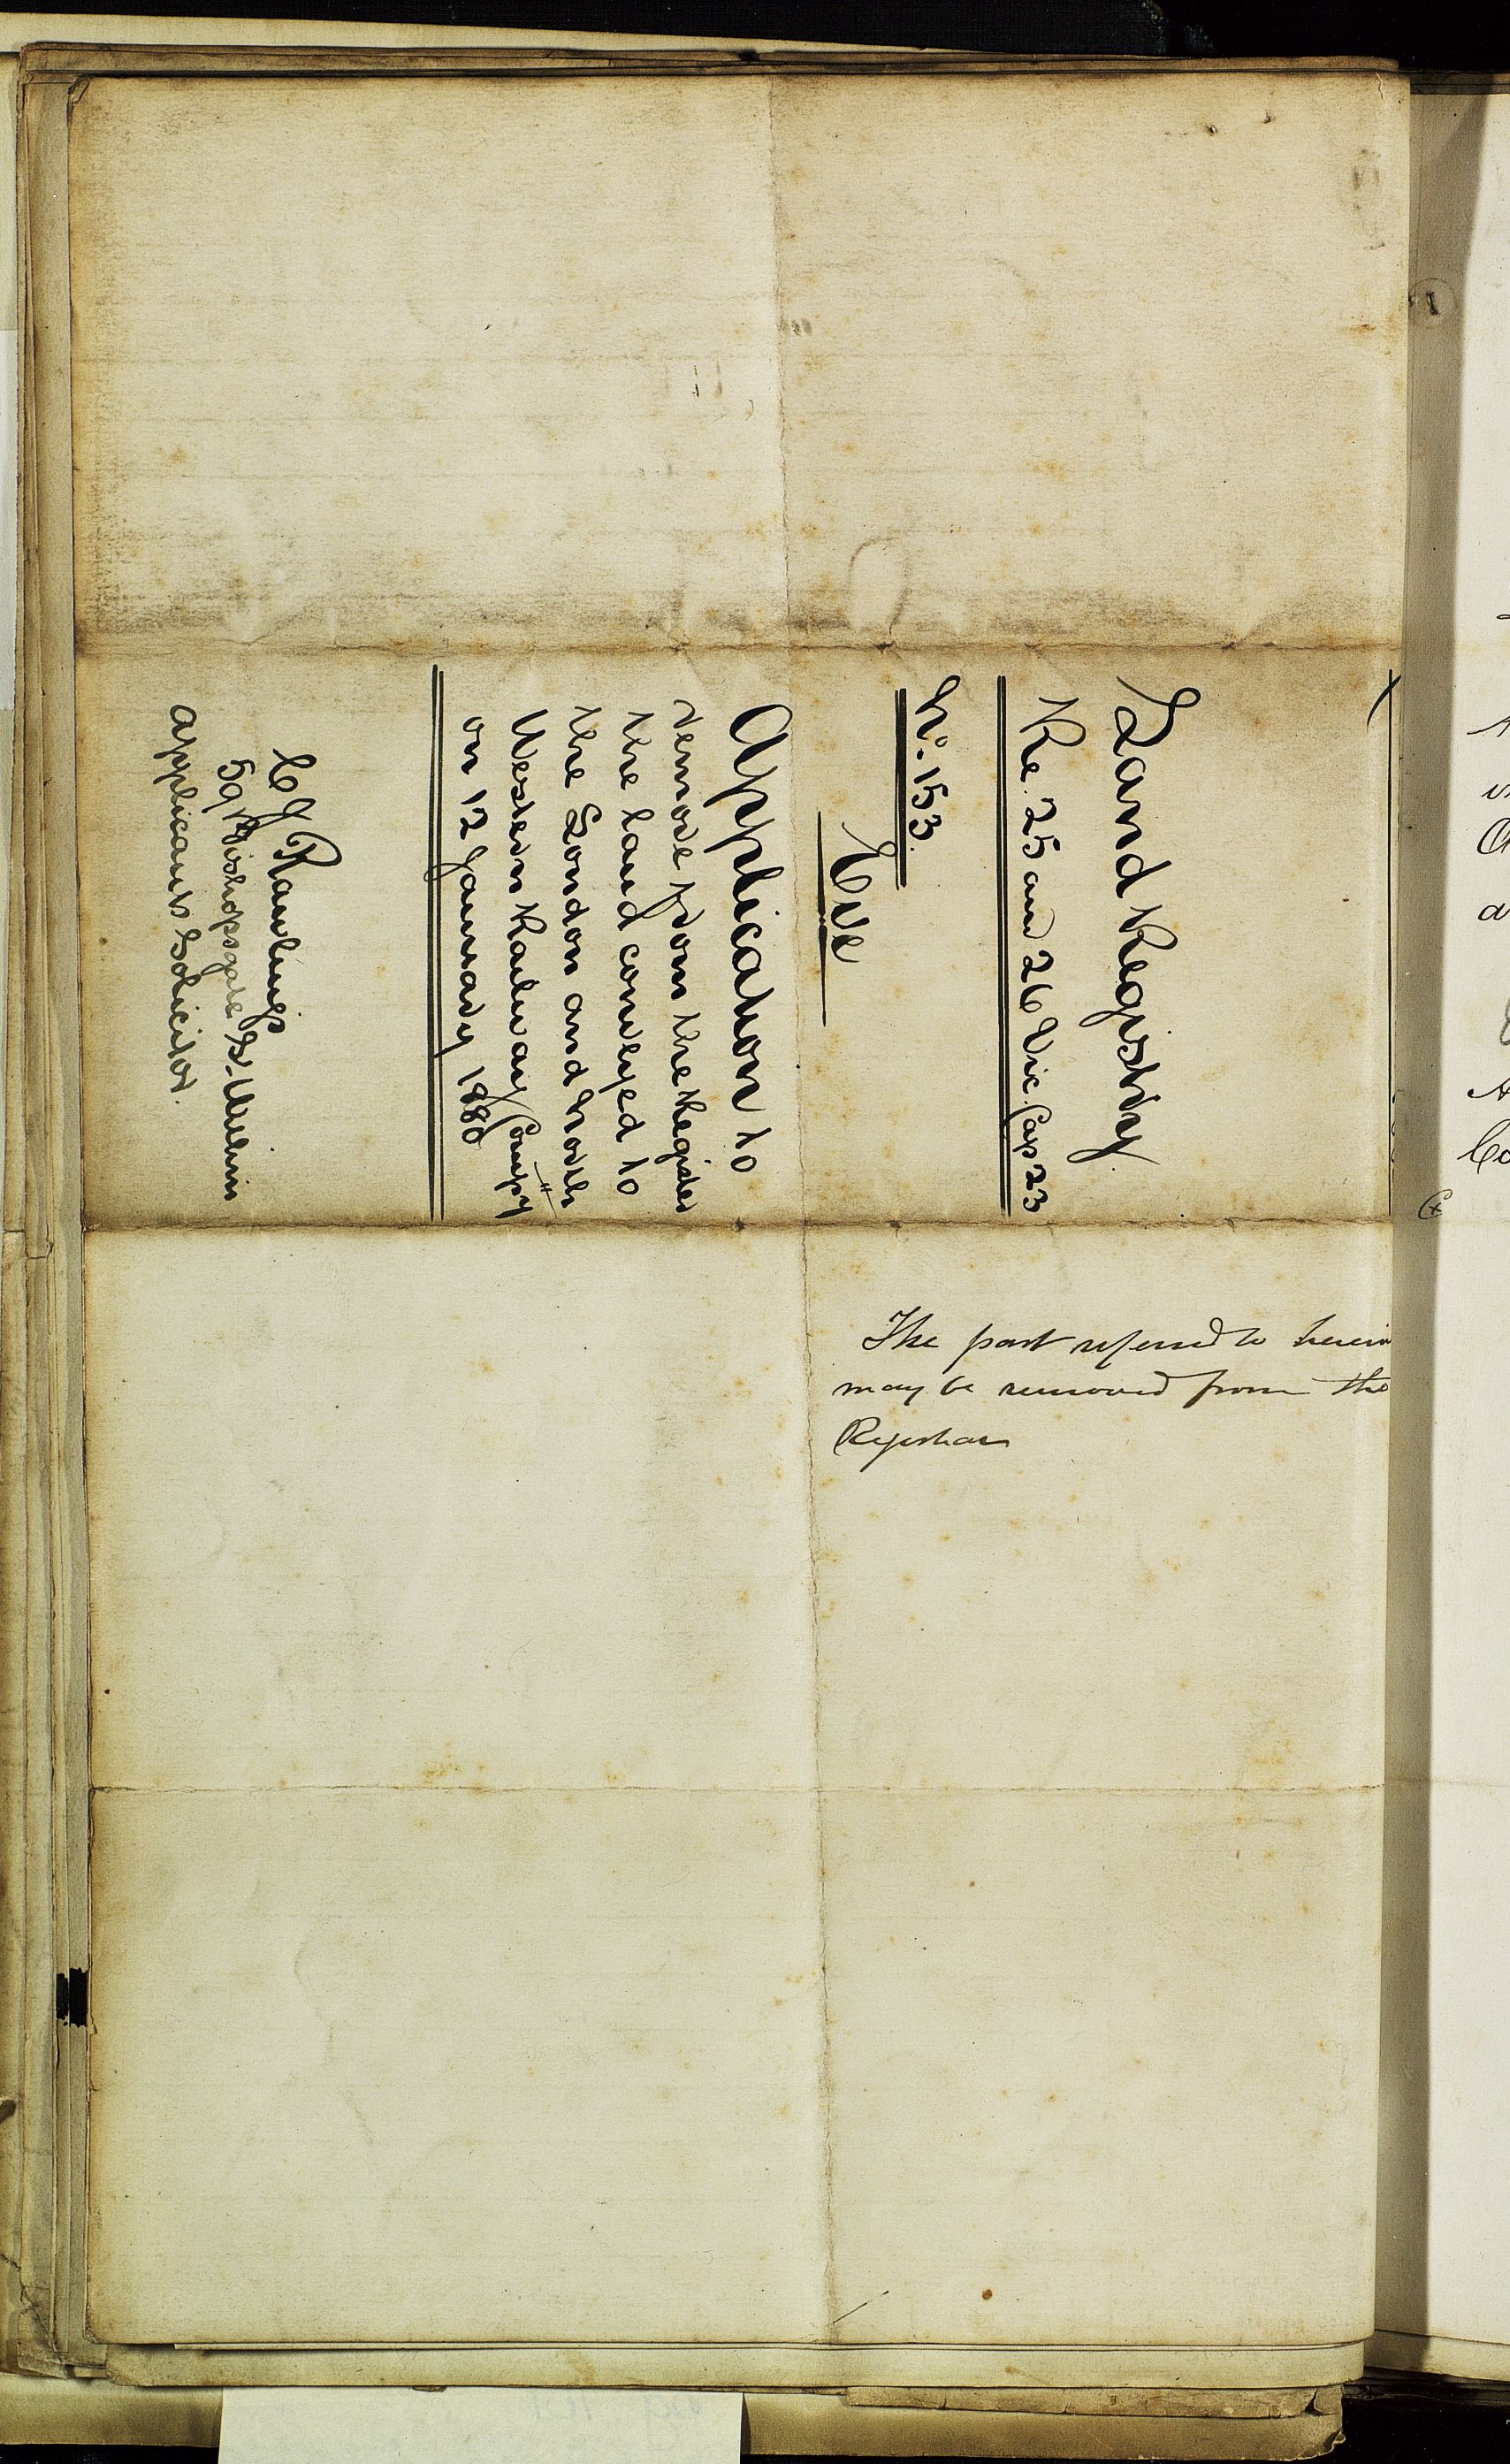 Land Registry
Re. 25 and 26 Vic. Cap 23
No. 153.
Eve
Application to
remove from the Register
the land conveyed to
the London and North
Western Railway Compy
on 12 January 1880
C J Rawlings
59 Bishopsgate St.
Applicants Solicitor.
The part referred to herein
may be removed from the